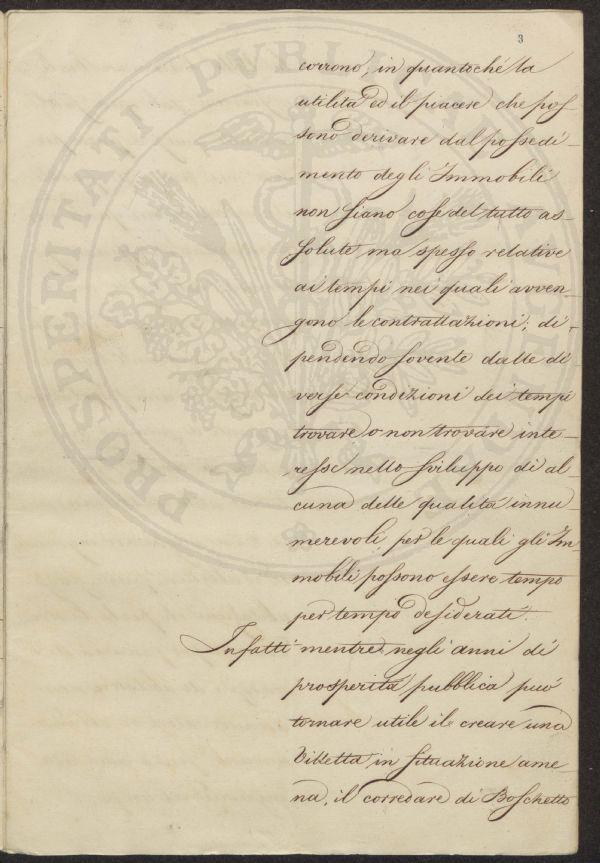 3
corrono, in quantoché la
utilità ed il piacere che pos
sono derivare dal possedi-
mento degli Immobili
non siano cose del tutto as-
solute ma spesso relative
ai tempi nei quali avven-
gono le contrattazioni; di-
pendendo sovente dalle di
verse condizioni dei tempi
trovare o non trovare inte-
resse nello sviluppo di al
cuna delle qualità innu
merevoli per le quali gli Im
mobili possono essere tempo
per tempo desiderati.
Infatti mentre negli anni di
prosperità pubblica può
tornare utile il creare una
Villetta in situazione ame
na, il corredare di Boschetto
PROSPERITATI PVBLICAE